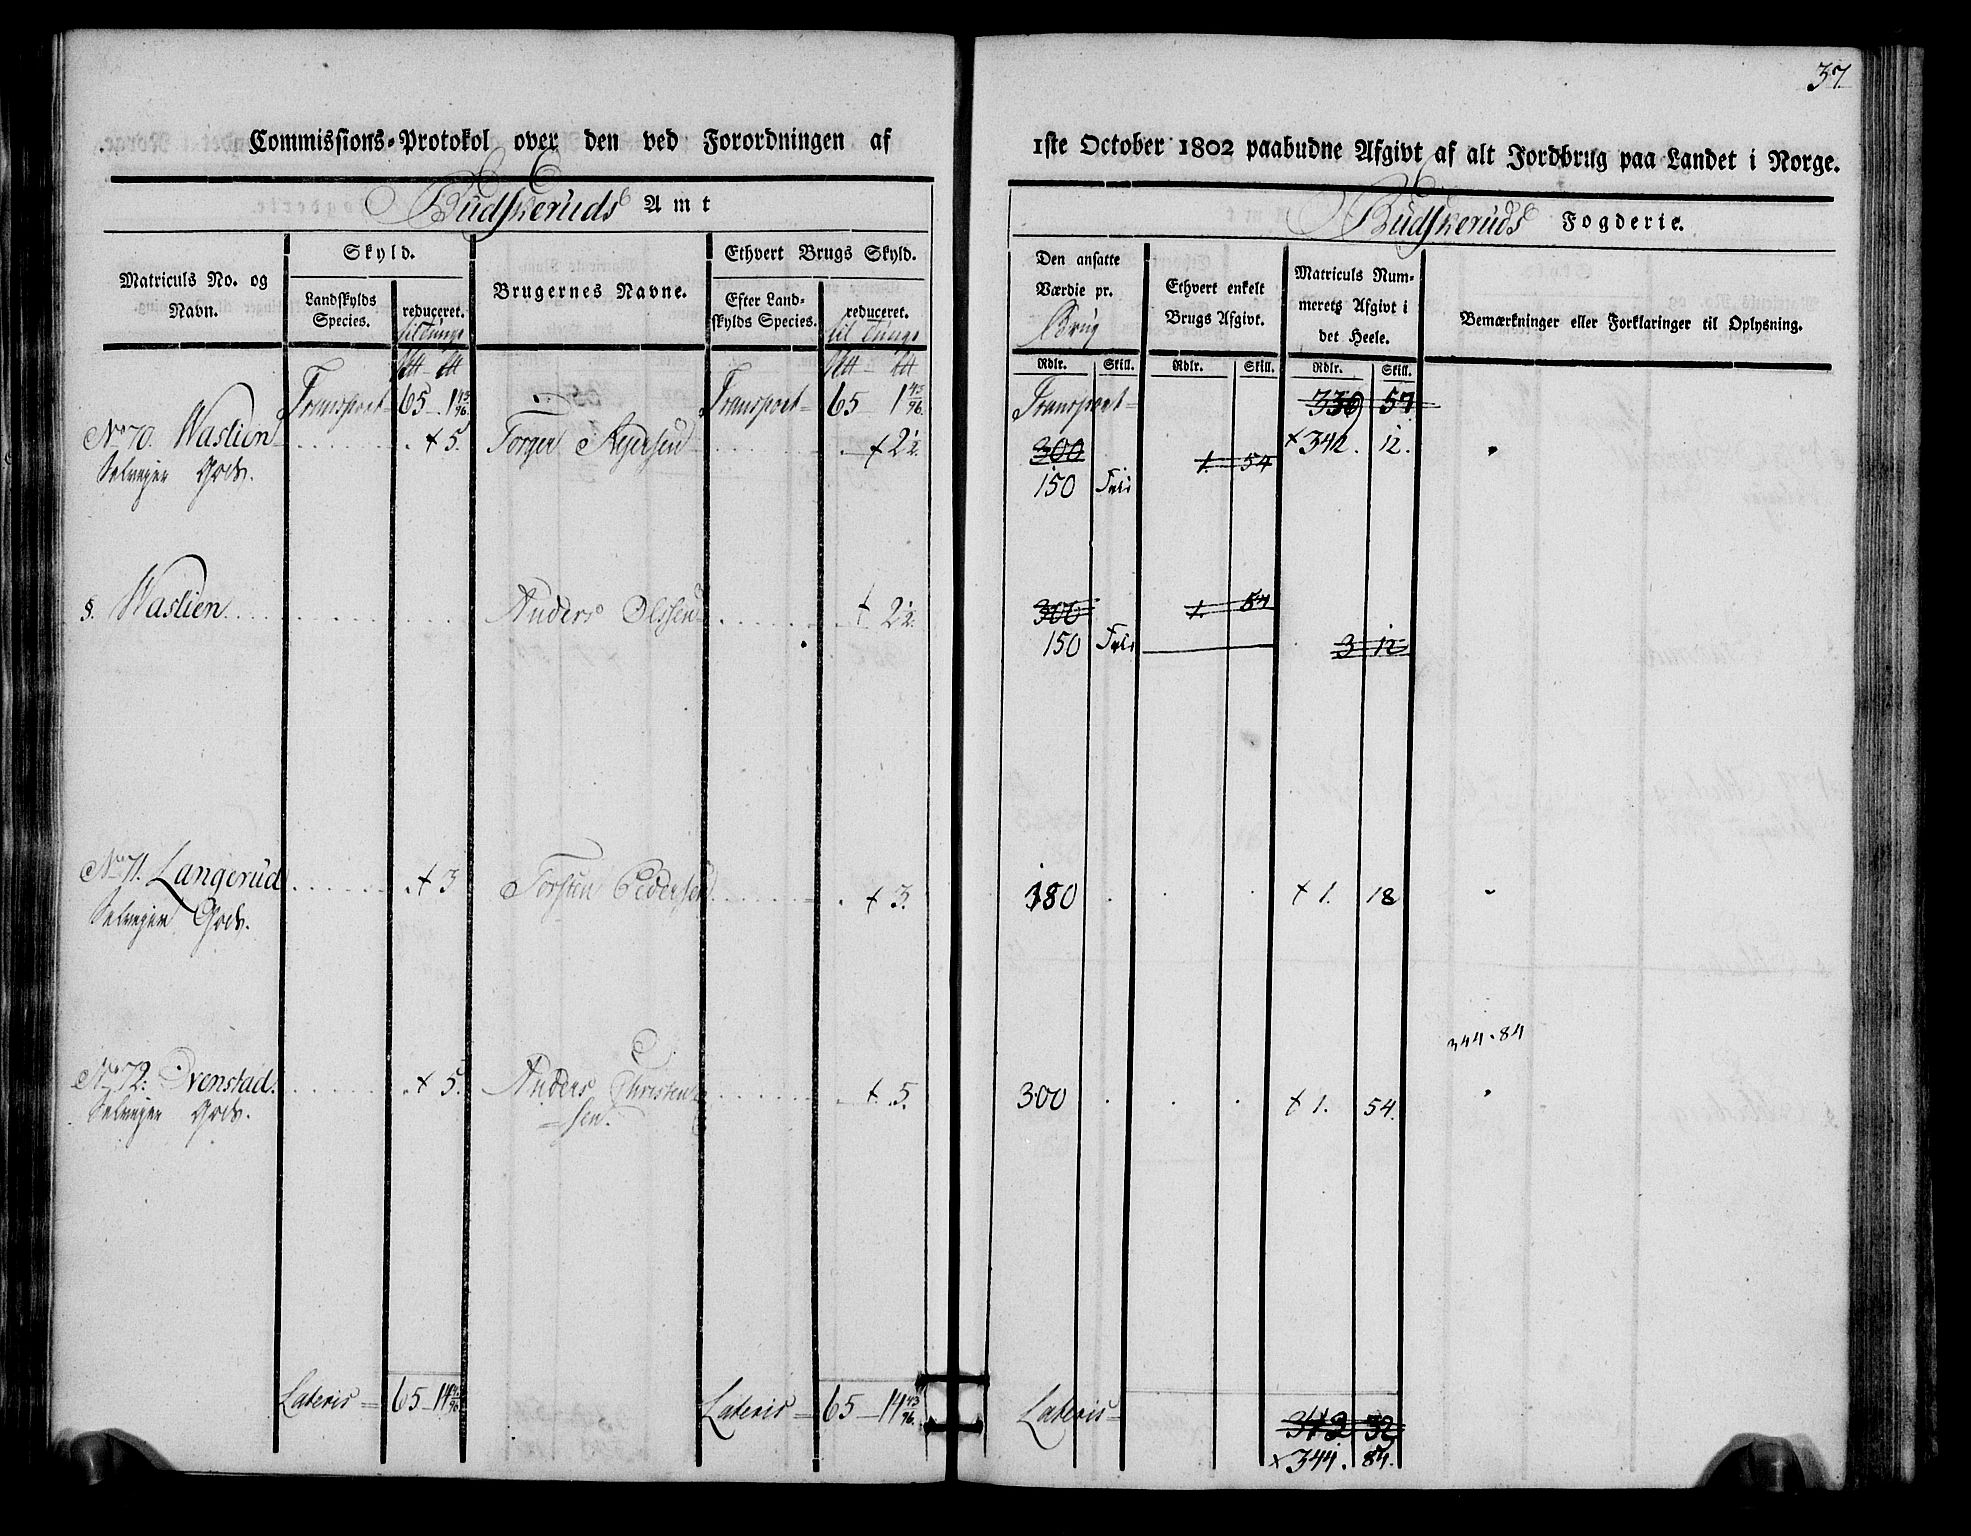 37.
Commissions-Protokol over den ved Forordningen af
1ste October 1802 paabudne Afgivt af alt Jordbrug paa Landet i Norge.
Budskeruds Amt
Budskeruds Fogderie.
Matriculs No. og Navn.
Skyld.
Landskylds Species.
reduceret.
til Tunge
Brugernes Navne.
Ethvert Brugs Skyld.
Efter Landskylds Species.
reduceret.
til Tunge
Den ansatte Værdie pr.
Brug
Rdlr. Skill.
Ethvert enkelt Brugs Afgivt.
Rdlr. Skill.
Matriculs Nummerets Afgivt i det Heele.
Rdlr. Skill.
Bemærkninger eller Forklaringer til Oplysning.
Transport 65 1 43/96 Transport 65 1 43/96 Transport 339 57
No 70. Wastien 5. Torger 2½ 300 1. 54 342. 12.
Selveyer Gods. 150 Fri
s. Wastien Anders Olssen 2½ 300 1. 54
150 Fri 3 12
No 71. Langerud 3 Torsten Peddersen 3. 180 1. 18
Selveyer Gods.
344.84
No 72. 5. Anders Christen 5. 300 1. 54.
Selveyer Gods. sen.
Lateris 65 14 43/96 Lateris 65 14 43/96 Lateris 342 32
344. 84.